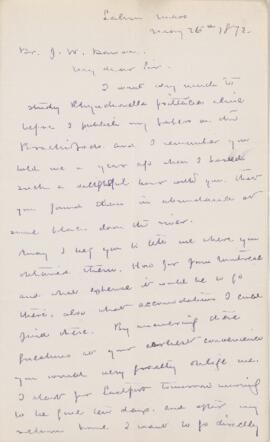 Salem Mass
May 26th 1872.
Dr. J. W. Dawson
My dear Sir.
I want very much to
study Rhynchonella psittacea alive
before I publish my papers on the
Brachiopoda and I remember you
told me a year ago when I passed
such a delightful hour with you, that
you found them in abundance at
some place down the river.
May I beg you to tell me where you
obtained them. How far from Montreal
and what expense it would be to go
there, also what accomodations I could
find there. By answering these
questions at your earliest convenience
you would very greatly oblige me.
I start for Eastport tomorrow morning
to be gone ten days. and after my
return home I want to go directly